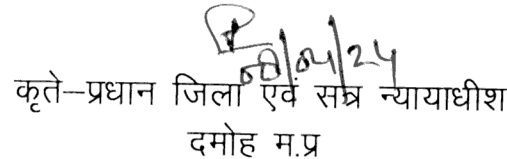 08/04/24
कृते–प्रधान जिला एवं सत्र न्यायाधीश
दमोह म.प्र